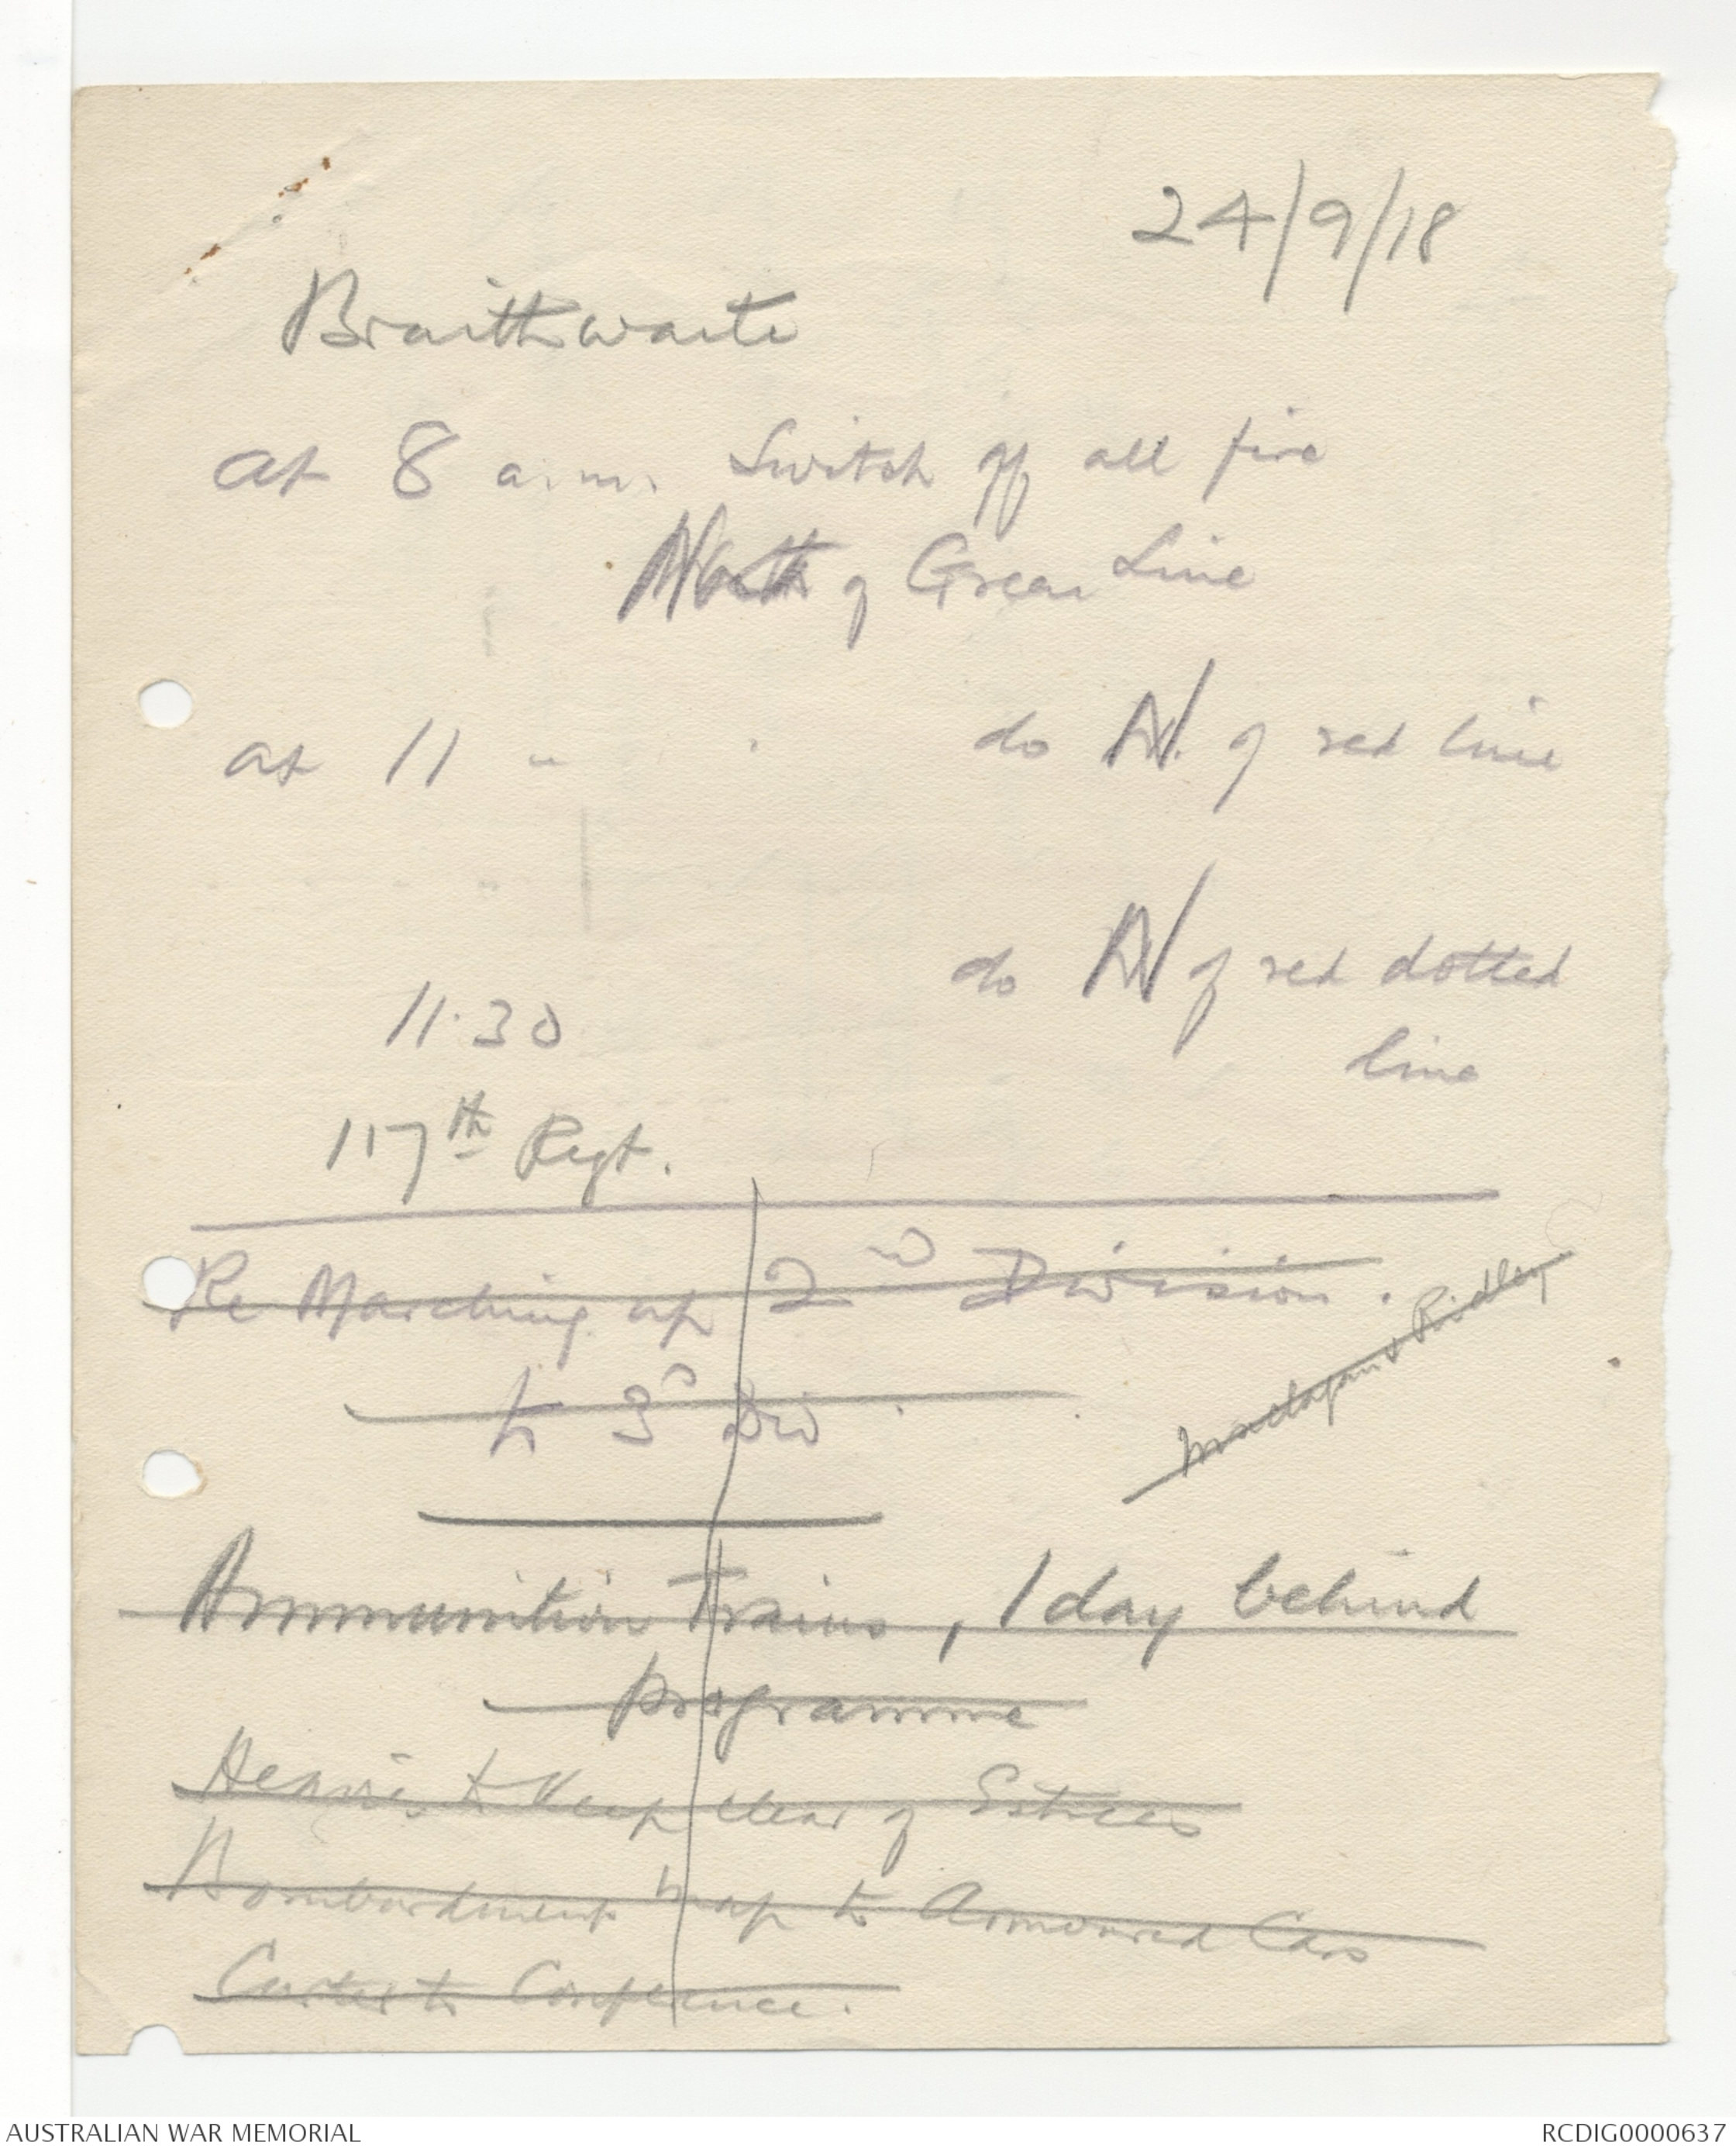 24/9/18
Braithwaite
at 8 a.m. Switch off all fire
North of Green Line
at 11 " do N. of red line
do N of red dotted
11.30
line
117th Regt.
Re Marching up 2nd Division.
to 3D Div.
& Ridley
Ammunition Trains, 1 day behind
programme
Heavies to keep clear of Estrees
Bombardment map to Armoured Cars
Carter to Conference.
AUSTRALIAN WAR MEMORIAL
RCDIG0000637